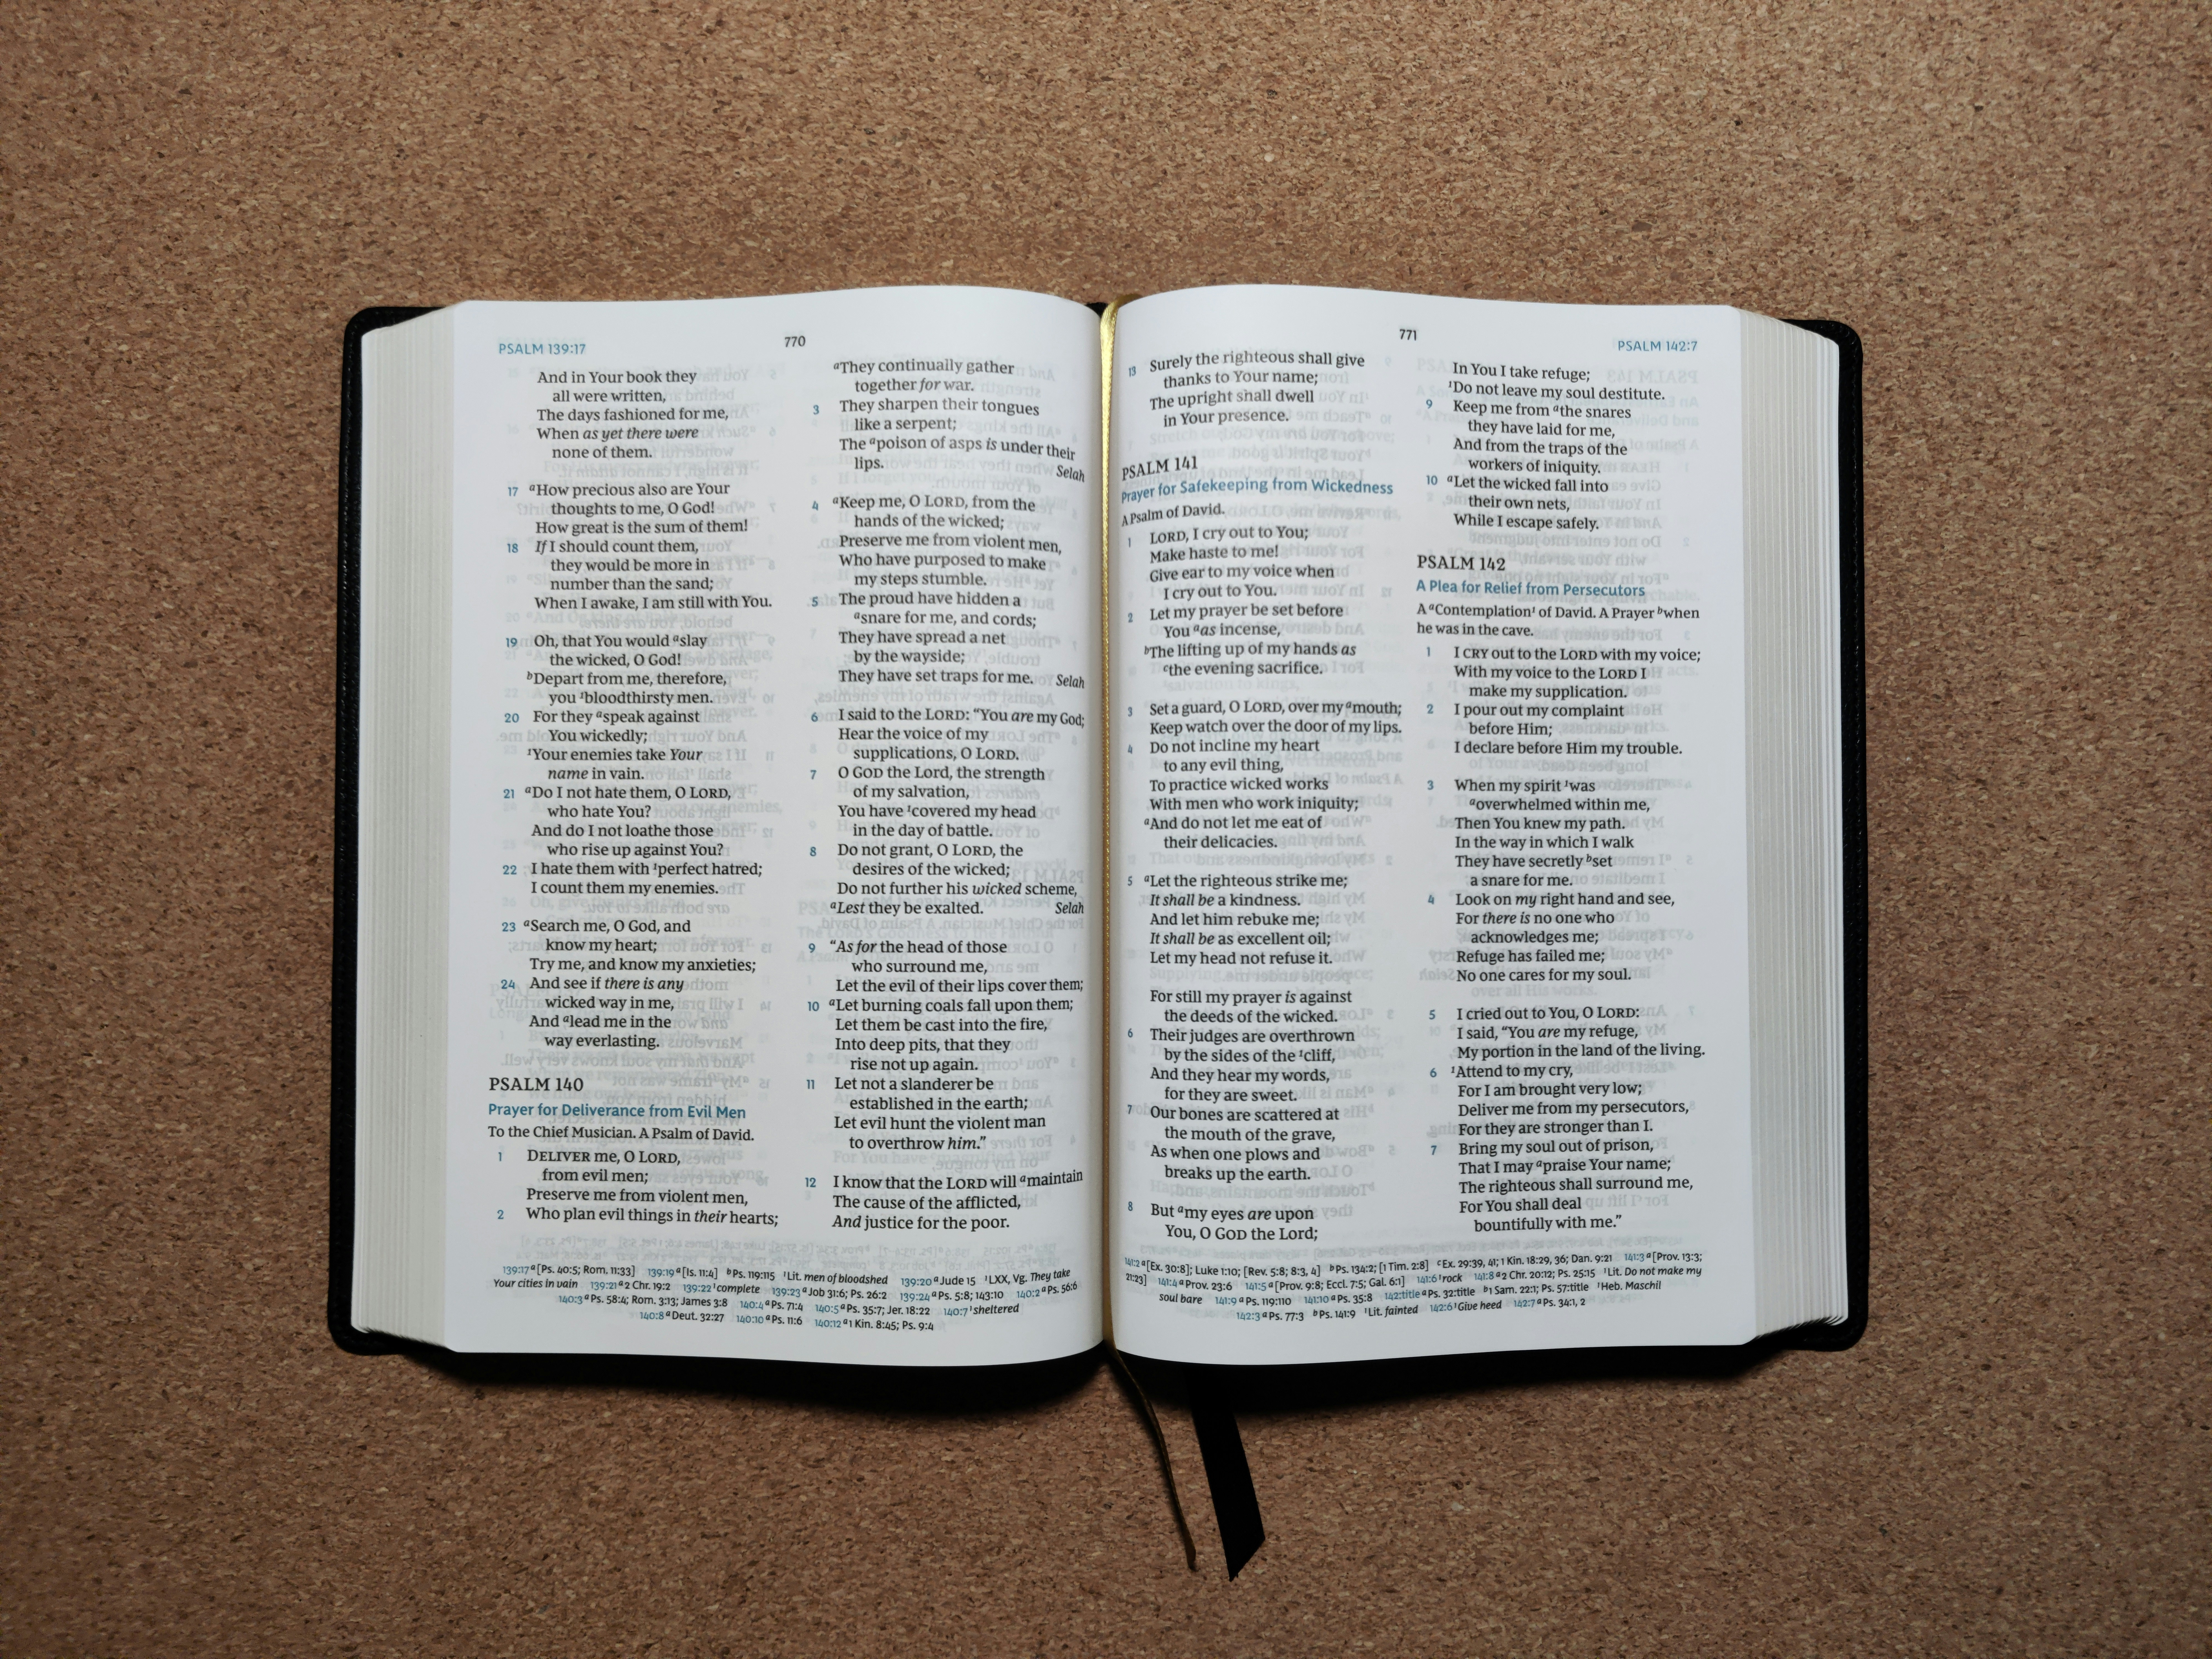 PSALM 139:17
770
And in Your book they
all were written,
The days fashioned for me,
When as yet there were
none of them.
17 aHow precious also are Your
thoughts to me, O God!
How great is the sum of them!
18 If I should count them,
they would be more in
number than the sand;
When I awake, I am still with You.
19 Oh, that You would aslay
the wicked, O God!
bDepart from me, therefore,
you 1bloodthirsty men.
20 For they aspeak against
You wickedly;
1Your enemies take Your
name in vain.
21 aDo I not hate them, O LORD,
who hate You?
And do I not loathe those
who rise up against You?
22 I hate them with 1perfect hatred;
I count them my enemies.
23 aSearch me, O God, and
know my heart;
Try me, and know my anxieties;
24 And see if there is any
wicked way in me,
And alead me in the
way everlasting.
PSALM 140
Prayer for Deliverance from Evil Men
To the Chief Musician. A Psalm of David.
1 DELIVER me, O LORD,
from evil men;
Preserve me from violent men,
2 Who plan evil things in their hearts;
aThey continually gather
together for war.
3 They sharpen their tongues
like a serpent;
The apoison of asps is under their
lips. Selah
4 aKeep me, O LORD, from the
hands of the wicked;
Preserve me from violent men,
Who have purposed to make
my steps stumble.
5 The proud have hidden a
asnare for me, and cords;
They have spread a net
by the wayside;
They have set traps for me. Selah
6 I said to the LORD: “You are my God;
Hear the voice of my
supplications, O LORD.
7 O GOD the Lord, the strength
of my salvation,
You have 1covered my head
in the day of battle.
8 Do not grant, O LORD, the
desires of the wicked;
Do not further his wicked scheme,
aLest they be exalted. Selah
9 “As for the head of those
who surround me,
Let the evil of their lips cover them;
10 aLet burning coals fall upon them;
Let them be cast into the fire,
Into deep pits, that they
rise not up again.
11 Let not a slanderer be
established in the earth;
Let evil hunt the violent man
to overthrow him.”
12 I know that the LORD will amaintain
The cause of the afflicted,
And justice for the poor.
139:17 a[Ps. 40:5; Rom. 11:33] 139:19 a[Is. 11:4] bPs. 119:115 1Lit. men of bloodshed 139:20 aJude 15 1LXX, Vg. They take
Your cities in vain 139:21 a2 Chr. 19:2 139:22 1complete 139:23 aJob 31:6; Ps. 26:2 139:24 aPs. 5:8; 143:10 140:2 aPs. 56:6
140:3 aPs. 58:4; Rom. 3:13; James 3:8 140:4 aPs. 71:4 140:5 aPs. 35:7; Jer. 18:22 140:7 1sheltered
140:8 aDeut. 32:27 140:10 aPs. 11:6 140:12 a1 Kin. 8:45; Ps. 9:4
771
PSALM 142:7
13 Surely the righteous shall give
thanks to Your name;
The upright shall dwell
in Your presence.
PSALM 141
Prayer for Safekeeping from Wickedness
A Psalm of David.
1 LORD, I cry out to You;
Make haste to me!
Give ear to my voice when
I cry out to You.
2 Let my prayer be set before
You aas incense,
bThe lifting up of my hands as
cthe evening sacrifice.
3 Set a guard, O LORD, over my amouth;
Keep watch over the door of my lips.
4 Do not incline my heart
to any evil thing,
To practice wicked works
With men who work iniquity;
aAnd do not let me eat of
their delicacies.
5 aLet the righteous strike me;
It shall be a kindness.
And let him rebuke me;
It shall be as excellent oil;
Let my head not refuse it.
For still my prayer is against
the deeds of the wicked.
6 Their judges are overthrown
by the sides of the 1cliff,
And they hear my words,
for they are sweet.
7 Our bones are scattered at
the mouth of the grave,
As when one plows and
breaks up the earth.
8 But amy eyes are upon
You, O GOD the Lord;
In You I take refuge;
1Do not leave my soul destitute.
9 Keep me from athe snares
they have laid for me,
And from the traps of the
workers of iniquity.
10 aLet the wicked fall into
their own nets,
While I escape safely.
PSALM 142
A Plea for Relief from Persecutors
A aContemplation1 of David. A Prayer bwhen
he was in the cave.
1 I CRY out to the LORD with my voice;
With my voice to the LORD I
make my supplication.
2 I pour out my complaint
before Him;
I declare before Him my trouble.
3 When my spirit 1was
aoverwhelmed within me,
Then You knew my path.
In the way in which I walk
They have secretly bset
a snare for me.
4 Look on my right hand and see,
For there is no one who
acknowledges me;
Refuge has failed me;
No one cares for my soul.
5 I cried out to You, O LORD:
I said, “You are my refuge,
My portion in the land of the living.
6 1Attend to my cry,
For I am brought very low;
Deliver me from my persecutors,
For they are stronger than I.
7 Bring my soul out of prison,
That I may apraise Your name;
The righteous shall surround me,
For You shall deal
bountifully with me.”
141:2 a[Ex. 30:8]; Luke 1:10; [Rev. 5:8; 8:3, 4] bPs. 134:2; [1 Tim. 2:8] cEx. 29:39, 41; 1 Kin. 18:29, 36; Dan. 9:21 141:3 a[Prov. 13:3;
21:23] 141:4 aProv. 23:6 141:5 a[Prov. 9:8; Eccl. 7:5; Gal. 6:1] 141:6 1rock 141:8 a2 Chr. 20:12; Ps. 25:15 1Lit. Do not make my
soul bare 141:9 aPs. 119:110 141:10 aPs. 35:8 142:title aPs. 32:title b1 Sam. 22:1; Ps. 57:title 1Heb. Maschil
142:3 aPs. 77:3 bPs. 141:9 1Lit. fainted 142:6 1Give heed 142:7 aPs. 34:1, 2